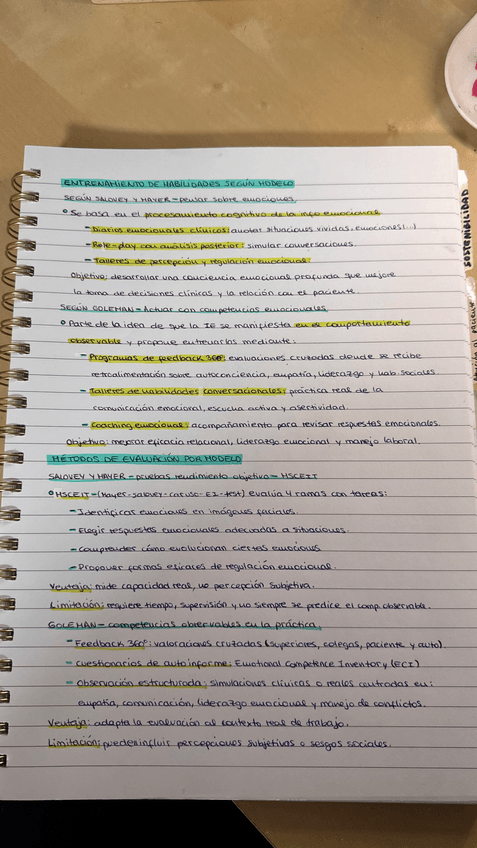 ENTRENAMIENTO DE HABILIDADES SEGÚN MODELO
SEGÚN SALOVEY Y MAYER - pensar sobre emociones
° Se basa en el procesamiento cognitivo de la info emocional
- Diarios emocionales clínicos: anotar situaciones vividas, emociones (...)
- Role-play con análisis posterior: simular conversaciones.
- Talleres de percepción y regulación emocional.
Objetivo: desarrollar una conciencia emocional profunda que mejore
la toma de decisiones clínicas y la relación con el paciente.
SEGÚN GOLEMAN - Actuar con competencias emocionales
° Parte de la idea de que la IE se manifiesta en el comportamiento
observable y propone entrenarlas mediante:
- Programas de feedback 360°: evaluaciones cruzadas donde se recibe
retroalimentación sobre autoconciencia, empatía, liderazgo y hab. sociales.
- Talleres de habilidades conversacionales: práctica real de la
comunicación emocional, escucha activa y asertividad.
- Coaching emocional: acompañamiento para revisar respuestas emocionales.
Objetivo: mejorar eficacia relacional, liderazgo emocional y manejo laboral.
MÉTODOS DE EVALUACIÓN POR MODELO
SALOVEY Y MAYER - pruebas rendimiento objetivo - MSCEIT
° MSCEIT - (Mayer-Salovey-Caruso-EI-test) evalúa 4 ramas con tareas:
- Identificar emociones en imágenes faciales.
- Elegir respuestas emocionales adecuadas a situaciones.
- Comprender cómo evolucionan ciertas emociones
- Proponer formas eficaces de regulación emocional.
Ventaja: mide capacidad real, no percepción subjetiva.
Limitación: requiere tiempo, supervisión y no siempre se predice el comp. observable.
GOLEMAN - competencias observables en la práctica
- Feedback 360°: valoraciones cruzadas (superiores, colegas, paciente y auto).
- Cuestionarios de autoinforme: Emotional Competence Inventory (ECI)
- Observación estructurada: simulaciones clínicas o reales centradas en:
empatía, comunicación, liderazgo emocional y manejo de conflictos.
Ventaja: adapta la evaluación al contexto real de trabajo.
Limitación: pueden influir percepciones subjetivas o sesgos sociales.
SOSTENIBILIDAD